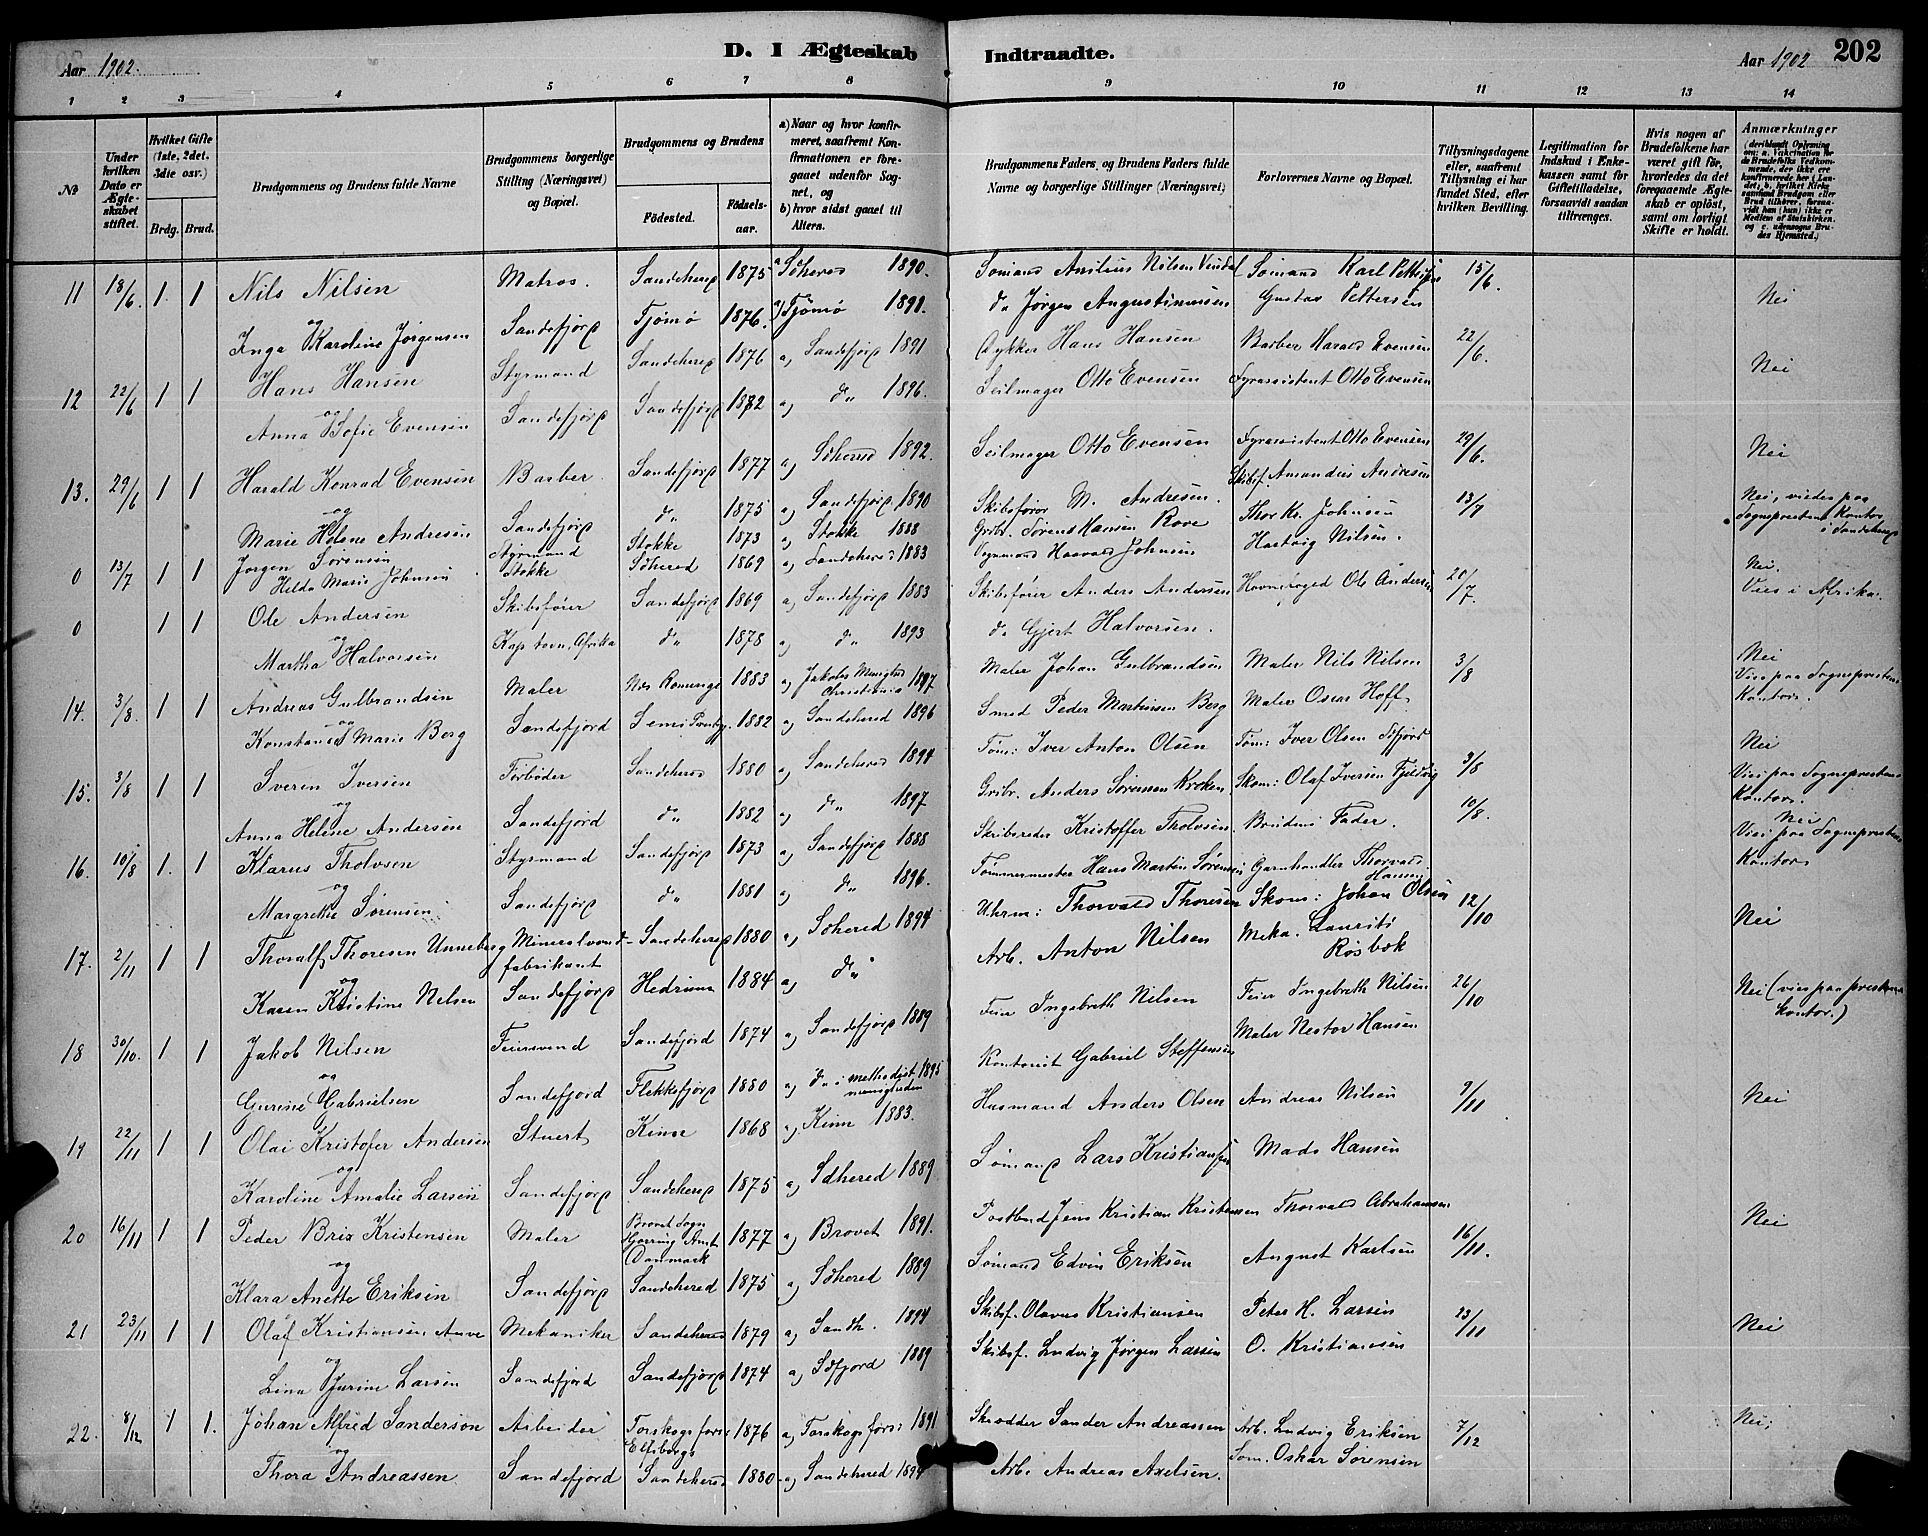 Aar 1902.
D. I Ægteskab Indtraadte.
Aar 1902
202
1 2 3 4 5 6 7 8 9 10 11 12 13 14
No
Under hvilken Dato er Ægteskabet stiftet.
Hvilket Gifte (1ste, 2det, 3die osv.)
Brdg. Brud.
Brudgommens og Brudens fulde Navne
Brudgommens borgerlige Stilling (Næringsvei) og Bopæl.
Brudgommens og Brudens
Födested.
Födselsaar.
a) Naar og hvor konfirmeret, saafremt Konfirmationen er foregaaet udenfor Sognet, og
b) hvor sidst gaaet til Alters.
Brudgommens Faders og Brudens Faders fulde Navne og borgerlige Stillinger (Næringsvei)
Forlovernes Navne og Bopæl.
Tillysningsdagene eller, saafremt Tillysning ei har fundet Sted, efter hvilken Bevilling.
Legitimation for Indskud i Enkekassen samt for Giftetilladelse, forsaavidt saadan tiltrænges.
Hvis nogen af Brudefolkene har været gift før, hvorledes da det foregaaende Ægteskab er oplöst, samt om lovligt Skifte er holdt.
Anmærkninger
(deriblandt Oplysning om: a. Vakcination for de Brudefolks Vedkommende, der ikke ere konfirmerede her i Landet; b. hvilket Kirkesamfund Brudgom eller Brud tilhörer, forsaavidt han (hun) ikke er Medlem af Statskirken, og c. udensogns Brudes Hjemsted.)
11 18/6. 1. 1 Nils Nilsen Matros. Sandeherd 1875 a Sdhered 1890. Sømand Anilius Nilsen Vindal Sømand Karl Pettersen 15/6. Nei
og Inga Karoline Jørgensen Sandefjord Tjømø 1876. a) Tjømø 1891. do Jørgen Augustinussen Gustav Pettersen
12 22/6 1 1 Hans Hansen Styrmand Sandeherd 1876 a) Sandefjord 1891 Dykker Hans Hansen Barber Harald Evensen 22/6. Nei
og Anna Sofie Evensen Sandefjord Sandefjord 1882 a) do 1896. Seilmager Otto Evensen Fyrassistent Otto Evensen
13. 29/6 1 1 Harald Konrad Evensen Barber Sandefjord 1877 a) Sdhered 1892. Seilmager Otto Evensen Fyrassistent Otto Evensen 29/6. Nei
og Marie Helene Andresen Sandefjord do 1875 a) Sandefjord 1890 Skibsfører M. Andresen. Skibsf. Amandus Andresen
0 13/7 1 1 Jørgen Sørensen Styrmand Stokke 1873 a) Stokke 1888 Grdbr. Sørens Hansen Rove Thor Kr. Johnsen 13/7 Nei, viedes paa Sognepresteus Kontor i Sandeherd
Helda Marie Johnsen Stokke Sdhered 1869 a) Sandeherd 1883 Vognmand Haavald Johnsen Hartvig Nilsen.
0 1 1 Ole Andersen Skibsfører Sandefjord 1869 a) Sandefjord 1883 Skibsfører Anders Andersen Havnefoged Ole Andersen 20/7. Nei. Vies i Afrika.
og Martha Halvorsen Kap town, Afrika do 1878 a) do 1893 do Gjert Halvorsen.
14. 3/8. 1 1 Andreas Gulbrandsen Maler Nes Romerige 1883 a) Jakobs Menighed Christiania 1897 Maler Johan Gulbrandsen Maler Nils Nilsen 3/8 Nei Vies paa Sogneprestens Kontor.
og Konstance Marie Berg Sandefjord Sem 1882 a) Sandehered 1896 Smed Peder Martinsen Berg Maler Oscar Hoff
15. 3/8 1 1 Sveren Iversen Førbøder Sandeherd 1880 a) Sandeherd 1894 Tøm: Iver Anton Olsen Tøm: Iver Olsen Sfjord 3/8 Nei Vies paa Sogneprestens Kontor.
og Anna Helene Andersen Sandefjord do 1882 a) do 1897 Grdbr. Anders Sørensen Kroken Skom: Olaf Iversen Fjeldvig
16. 10/8 1. 1 Klarus Tholvsen Styrmand Sandefjord 1873 a) Sandefjord 1888 Skibsreder Kristoffer Tholvsen. Brudens Fader. 10/8. Nei Vies paa Sogneprestens Kontor
og Margrethe Sørensen Sandefjord do 1881 a) do 1896. Tømmermester Hans Martin Sørensen Garnhandler Thorvald Hansen
17. 2/11 1 1 Thoralf Thoresen Unneberg Mineralvandfabrikant Sandeherd 1880 a) Sdhered 1894 Uhrm: Thorvald Thoresen Skom: Johan Olsen 12/10 Nei
og Karen Kristine Nilsen Sandefjord Hedrum 1884 a) do Arb. Anton Nilsen Meka. Laurits Røsbok
18 30/10. 1 1 Jakob Nilsen Feiersvend Sandefjord 1874 a) Sandefjord 1889 Feier Ingebreth Nilsen Feier Ingebreth Nilsen 26/10 Nei (vies paa prestens kontor.)
og Gurine Gabrielsen Sandefjord Flekkefjord 1880 a) do i methodistmenigheden 1895 Kontorist Gabriel Steffensen Maler Nestor Hansen
19 22/11 1 1 Olai Kristofer Andersen Stuert Kinn 1868 a) Kinn 1883. Husmand Anders Olsen Andreas Nilsen 9/11 Nei
og Karoline Amalie Larsen Sandefjord Sandeherd 1875 a) Sdhered 1889 Sømand Lars Kristiansen Mads Hansen
20 16/11 1 1 Peder Brix Kristensen Maler Brovst Sogn Hjørring Amt Danmark 1877 a) Brovst 1891. Postbud Jens Kristian Kristensen Thorvald Abrahamsen 16/11. Nei
og Klara Anette Eriksen Sandefjord Sandehered 1875 a) Sdhered 1889 Sømand Edvin Eriksen August Karlsen
21 23/11 1 1 Olaf Kristiansen Mekaniker Sandehered 1879 a) Sandh. 1894 Skibsf. Olavus Kristiansen Peter H. Larsen 23/11 Nei
og Lina Jurine Larsen Sandefjord Sandefjord 1874 a) Sdfjord 1889 Skibsf. Ludvig Jørgen Larsen O. Kristiansen
22. 8/12 1 1. Johan Alfred Sanderson Arbeider Torskogs fors: Elfsborgs 1876 a) Torskogs fors: 1891 Skrædder Sander Andreassen Arb. Ludvig Eriksen 7/12 Nei;
og Thora Andreassen Sandefjord Sandehered 1880. a) Sandehered 1894 Arb: Andreas Axelsen. Søm. Oskar Sørensen